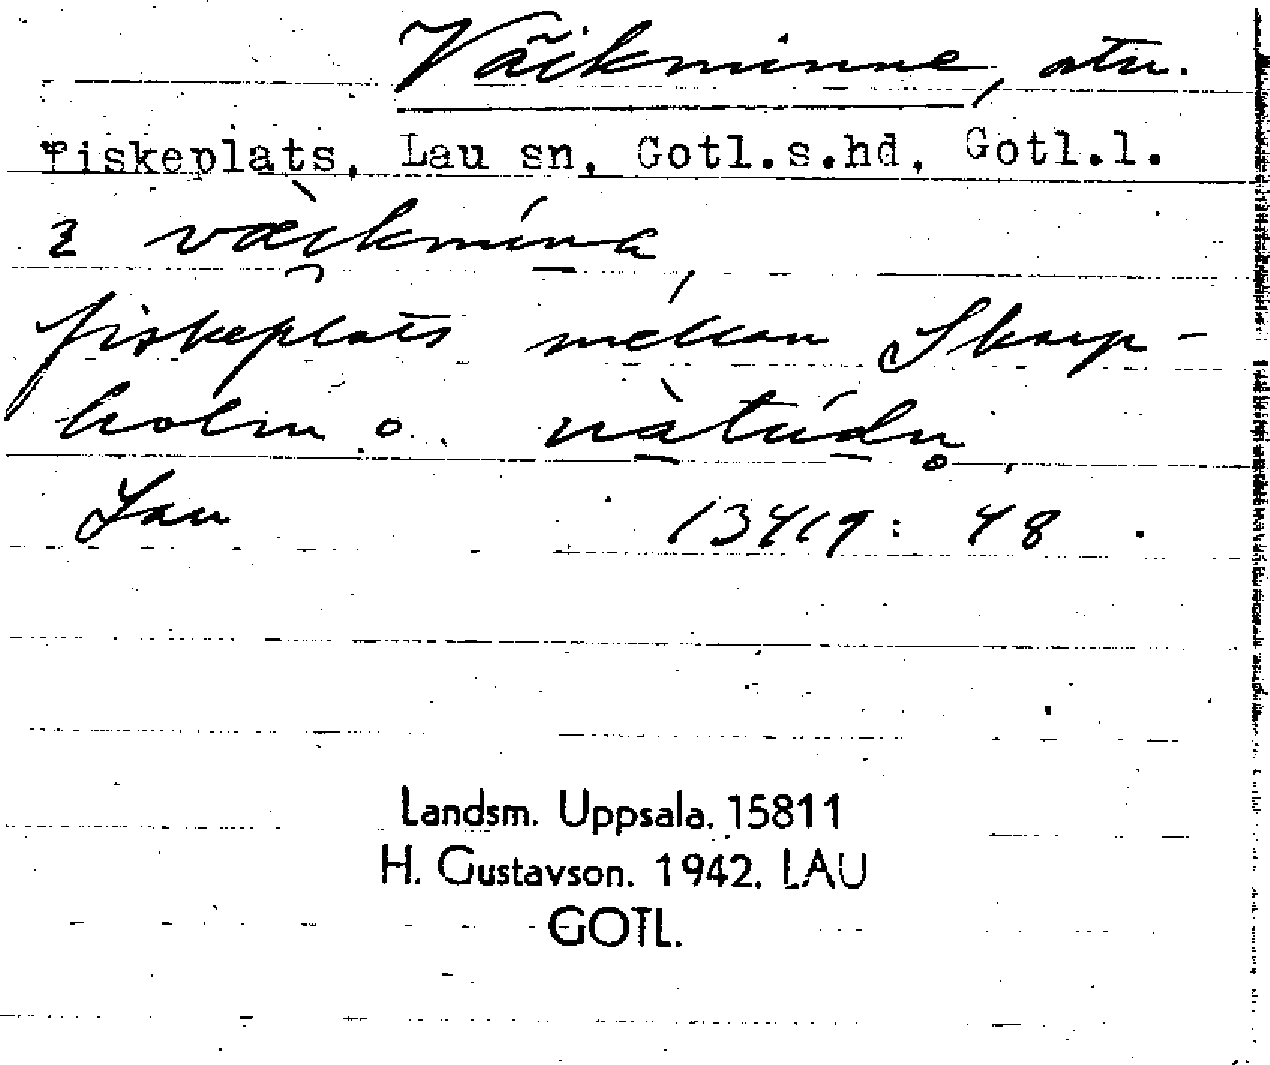 Väikminne, stu.
Fiskeplats, Lau sn, Gotl.s.hd, Gotl.l.
fiskeplats mellan Skarp-
holm o.
Lau 13419: 48.
Landsm. Uppsala. 15811
H. Gustavson. 1942. LAU
GOTL.